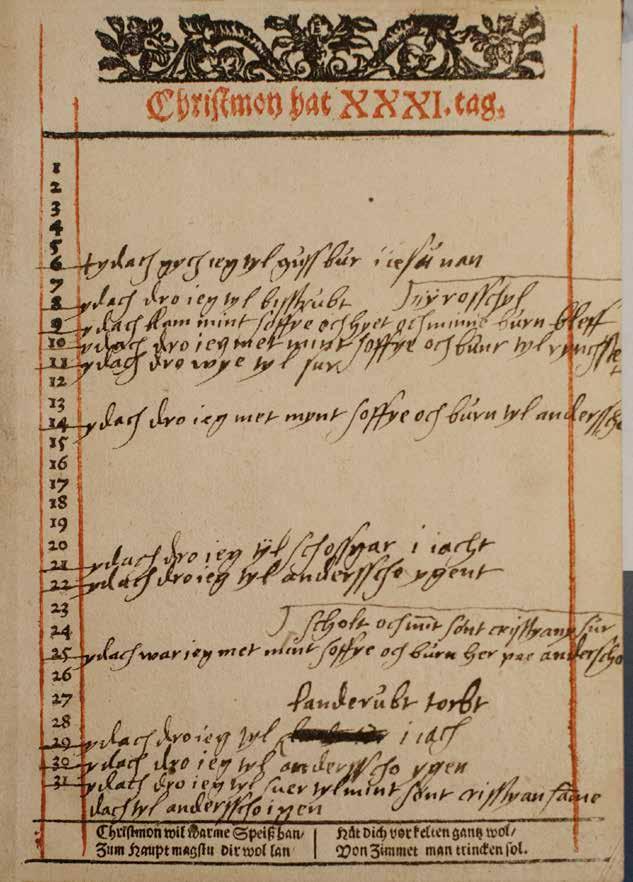 Christmon hat XXXI. tag.
1
2
3
4
5
6 ydach gych ieg tyl gussbur i iesu nan
7
8 ydach dro ieg tyl bistrubt i yrosschyl
9 ydach kam mint soffye och hyet och minne burn bleff
10 ydach dro ieg met mint soffye och burn tyl
11 ydach dro wye tyl sur
12
13
14 ydach dro ieg met mynt soffye och burn tyl anderssho
15
16
17
18
19
20
21 ydach dro ieg tyl i iacht
22 ydach dro ieg tyl anderssho ygent
23
24 scholt och mit sønt cristyans sur
25 ydach war ieg met mint soffye och burn her paa andersho
26
27 landerubt torbt
28
29 ydach dro ieg tyl i iach
30 ydach dro ieg tyl anderssho ygen
31 ydach dro ieg tyl suer tyl mint sønt cristyan same
dach tyl anderssho igen
Christmon wil Warme Speiß han/
Zum Haupt magstu dir wol lan
Hüt dich vor kelten gantz wol/
Von Zimmet man trincken sol.